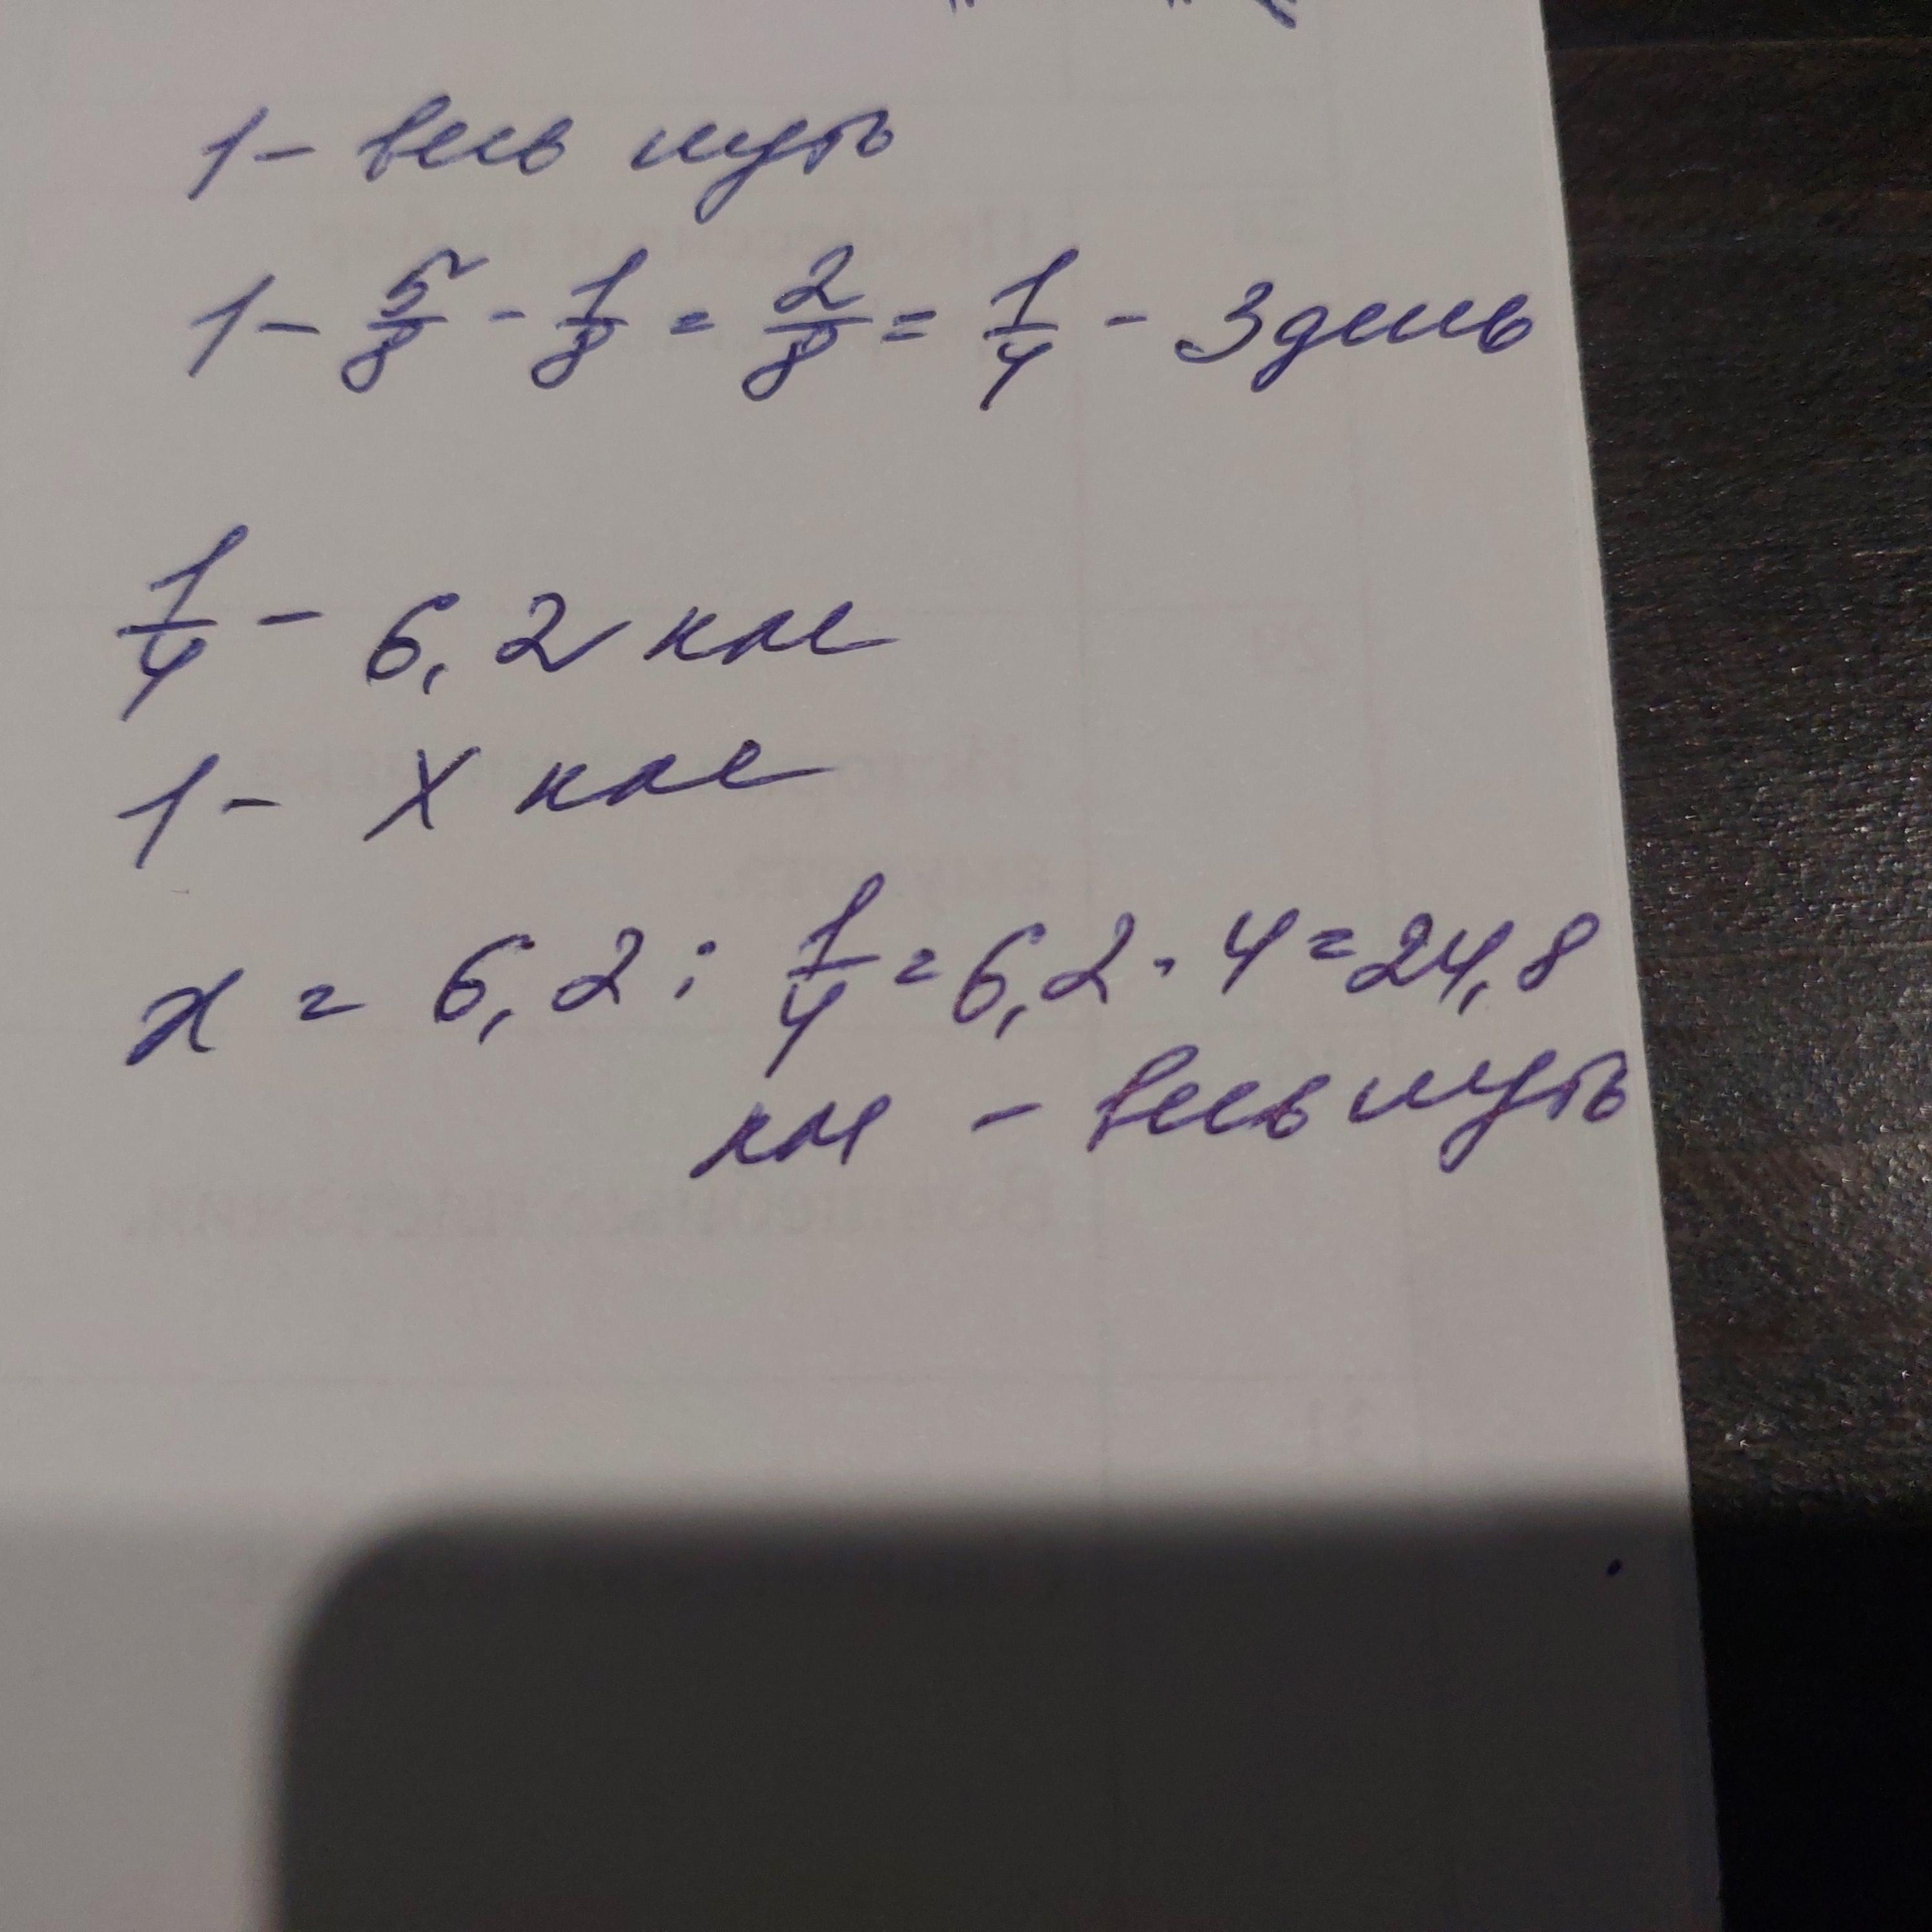 1 - весь путь
1 - 5/8 - 1/8 = 2/8 = 1/4 - 3 день
1/4 - 6,2 км
1 - х км
х = 6,2 : 1/4 = 6,2 · 4 = 24,8
км - весь путь